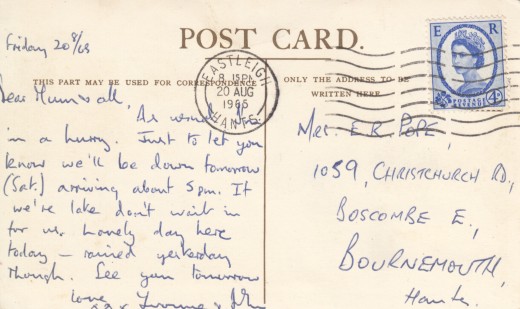 Friday 20/8/65
POST CARD.
E R
POSTAGE
REVENUE
4D
EASTLEIGH
8 15PM
20 AUG
1965
HANTS
THIS PART MAY BE USED FOR CORRESPONDENCE
ONLY THE ADDRESS TO BE
WRITTEN HERE.
Dear Mum & all,
As usual I'm
in a hurry. Just to let you
know we'll be down tomorrow
(Sat.) arriving about 5pm. If
we're late don't wait in
for us. Lovely day here
today – rained yesterday
though. See you tomorrow
love
Yvonne & John
Mrs. E R POPE,
1059, CHRISTCHURCH RD,
BOSCOMBE E.,
BOURNEMOUTH,
Hants.